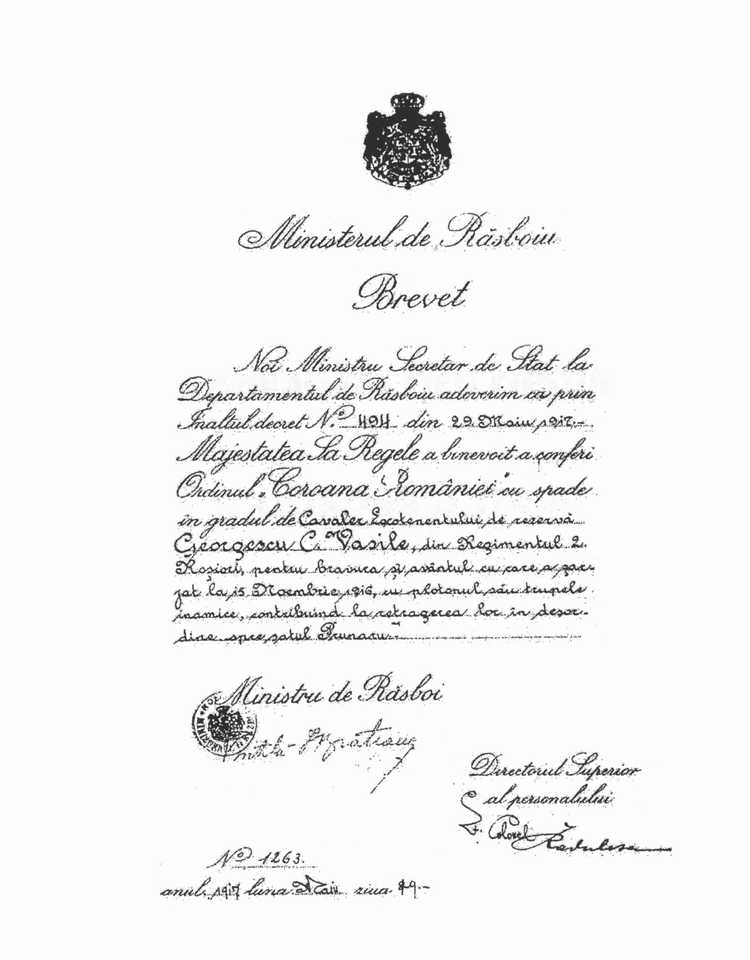 Ministerul de Răsboiu
Brevet
Noi Ministru Secretar de Stat la
Departamentul de Răsboiu adeverim că prin
Înaltul decret No. 494 din 29 Maiu 1917.-
Majestatea Sa Regele a binevoit a conferi
Ordinul „Coroana României” cu spade
în gradul de Cavaler Locotenentului de rezervă
Georgescu C. Vasile, din Regimentul 2
Roșiori, pentru bravura și avântul cu care a șar-
jat la 15 Noembrie 1916, cu plotonul său trupele
inamice, contribuind la retragerea lor în desor-
dine spre satul Prunaru.-
Ministru de Răsboi
Directorul Superior
al personalului
Colonel Radulescu
No 1263.
anul 1917 luna Maiu ziua 29.-